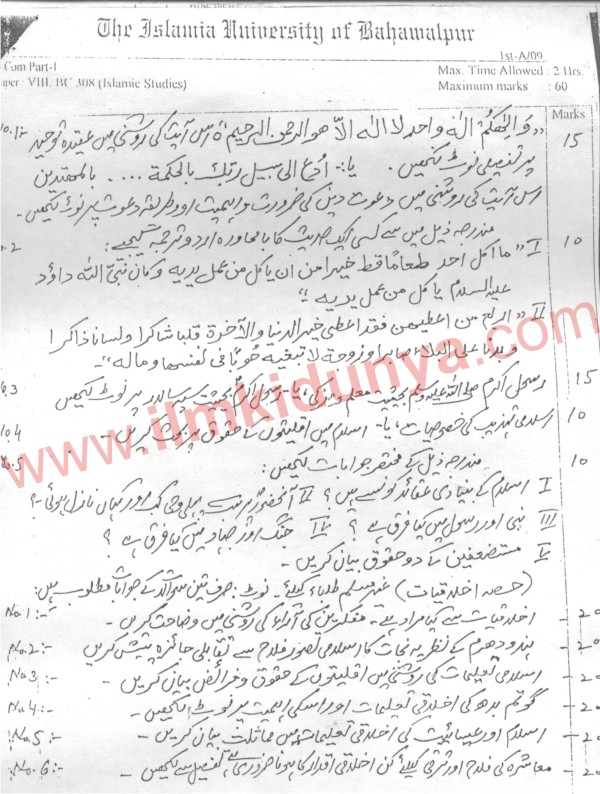 The Islamia University of Bahawalpur
1st-A/09
Com Part-I
Max. Time Allowed : 2 Hrs.
aper : VIII, BC 308 (Islamic Studies)
Maximum marks : 60
Marks
„وَاِلٰهُكُمْ اِلٰهٌ وَاحِدٌ لا اله الّا هو الرحمن الرحیم" اس آیت کی روشنی میں عقیدہ توحید 15
پر تفصیلی نوٹ لکھیں۔ یا: اُدْعُ الی سبیل ربّك بالحکمة .... بالمهتدین
اس آیت کی روشنی میں دعوت دین کی ضرورت و اہمیت اور طریقہ دعوت پر نوٹ لکھیں۔
o.2 مندرجہ ذیل میں سے کسی ایک حدیث کا بامحاورہ اردو ترجمہ کیجیے: 10
I "ما اکل احد طعامًا قط خیرا من ان یاکل من عمل یدیه وکان نبیّ الله داؤد
علیه السلام یاکل من عمل یدیه"
II "اربع من اعطیهن فقد اعطی خیر الدنیا والآخرة قلبا شاکرا ولسانا ذاکرا
و بدنا علی البلاء صابرا وزوجة لا تبغیه خوبًا فی نفسها وماله"۔
o.3 رسول اکرم صلی اللہ علیہ وسلم بحیثیت معلم و مزکی، یا۔ رسول اکرمؐ بحیثیت سپہ سالار پر نوٹ لکھیں 15
o.4 اسلامی تہذیب کی خصوصیات، یا۔ اسلام میں اقلیتوں کے حقوق پر بحث کریں۔ 10
o.5 مندرجہ ذیل کے مختصر جوابات لکھیں: 10
I اسلام کے بنیادی عقائد کونسے ہیں؟ II آنحضورؐ پر سب پہلی وحی کب اور کہاں نازل ہوئی؟
III نبی اور رسول میں کیا فرق ہے؟ IV جنگ اور جہاد میں کیا فرق ہے؟
V مستضعفین کے دو حقوق بیان کریں۔
(حصہ اخلاقیات) غیر مسلم طلباء کیلئے۔ نوٹ: صرف تین سوالات کے جوابات مطلوب ہیں:
No.1:- اخلاقیات سے کیا مراد ہے۔ مفکرین کی آراء کی روشنی میں وضاحت کریں۔ 20
No.2:- ہندو دھرم کے نظریہ نجات کا اسلامی تصور فلاح سے تقابلی جائزہ پیش کریں 20
No3:- اسلامی تعلیمات کی روشنی میں اقلیتوں کے حقوق و فرائض بیان کریں۔ 20
No4:- گوتم بدھ کی اخلاقی تعلیمات اور اسکی اہمیت پر نوٹ لکھیں۔ 20
No5:- اسلام اور عیسائیت کی اخلاقی تعلیمات میں مماثلت بیان کریں۔ 20
No.6:- معاشرہ کی فلاح اور ترقی کیلئے کن اخلاقی اقدار کا ہونا ضروری ہے تفصیل سے لکھیں۔ 20
www.ilmkidunya.com